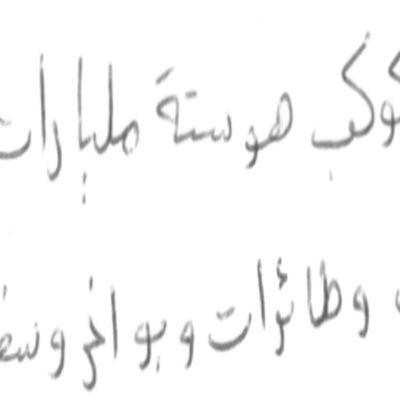 كوكب هو ستة مليارات
وطائرات وبواخر